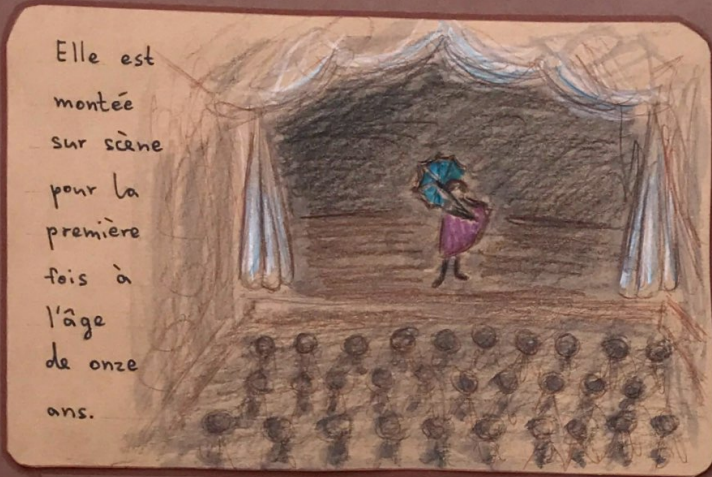 Elle est
montée
sur scène
pour la
première
fois à
l'âge
de onze
ans.